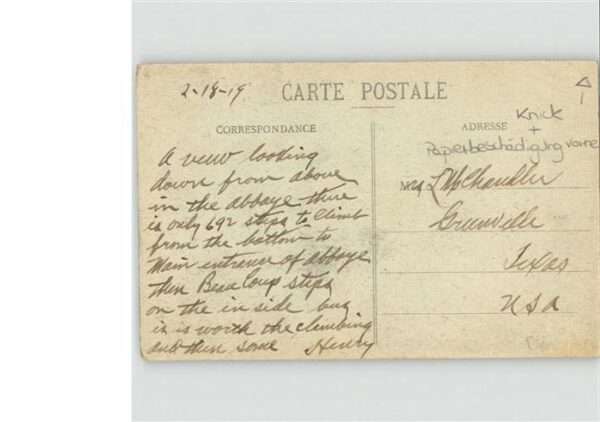 2-18-19
CARTE POSTALE
CORRESPONDANCE
A veiw looking
down from above
in the abbaye there
is only 692 steps to climb
from the bottom to
Main entrance of abbaye
then Beau Coup steps
on the in side but
is is worth the climbing
and then some Henry
ADRESSE
Knick
+
Papierbeschädigung vorne
L M Chandler
Greenville
Texas
USA